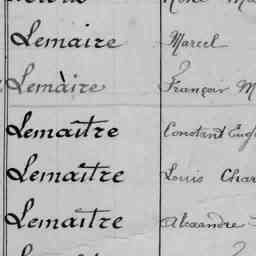 Lemaire Marcel
Lemàire François M
Lemaître Constant Eug
Lemaître Louis Char
Lemaître Alexandre